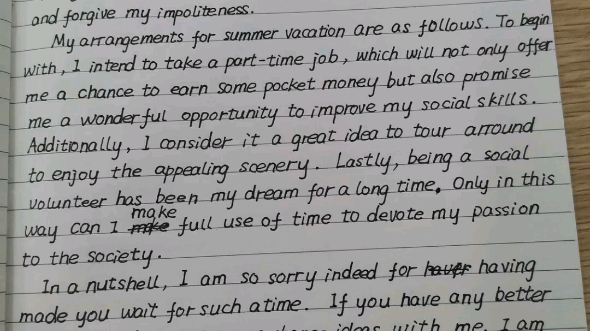 and forgive my impoliteness.
My arrangements for summer vacation are as follows. To begin
with, I intend to take a part-time job, which will not only offer
me a chance to earn some pocket money but also promise
me a wonderful opportunity to improve my social skills.
Additionally, I consider it a great idea to tour arround
to enjoy the appealing scenery. Lastly, being a social
volunteer has been my dream for a long time. Only in this
way can I make full use of time to devote my passion
to the society.
In a nutshell, I am so sorry indeed for having
made you wait for such a time. If you have any better
ideas with me, I am